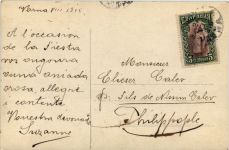 Varna VIII 1915
A l'occasion
de la Siestra
vos anguro
una aniada
orosa, allegre
i contente
Vuestra devouada
Suzanne
Monsieur
Eliezer Calev
Fils de Nissim Calev
Philippople